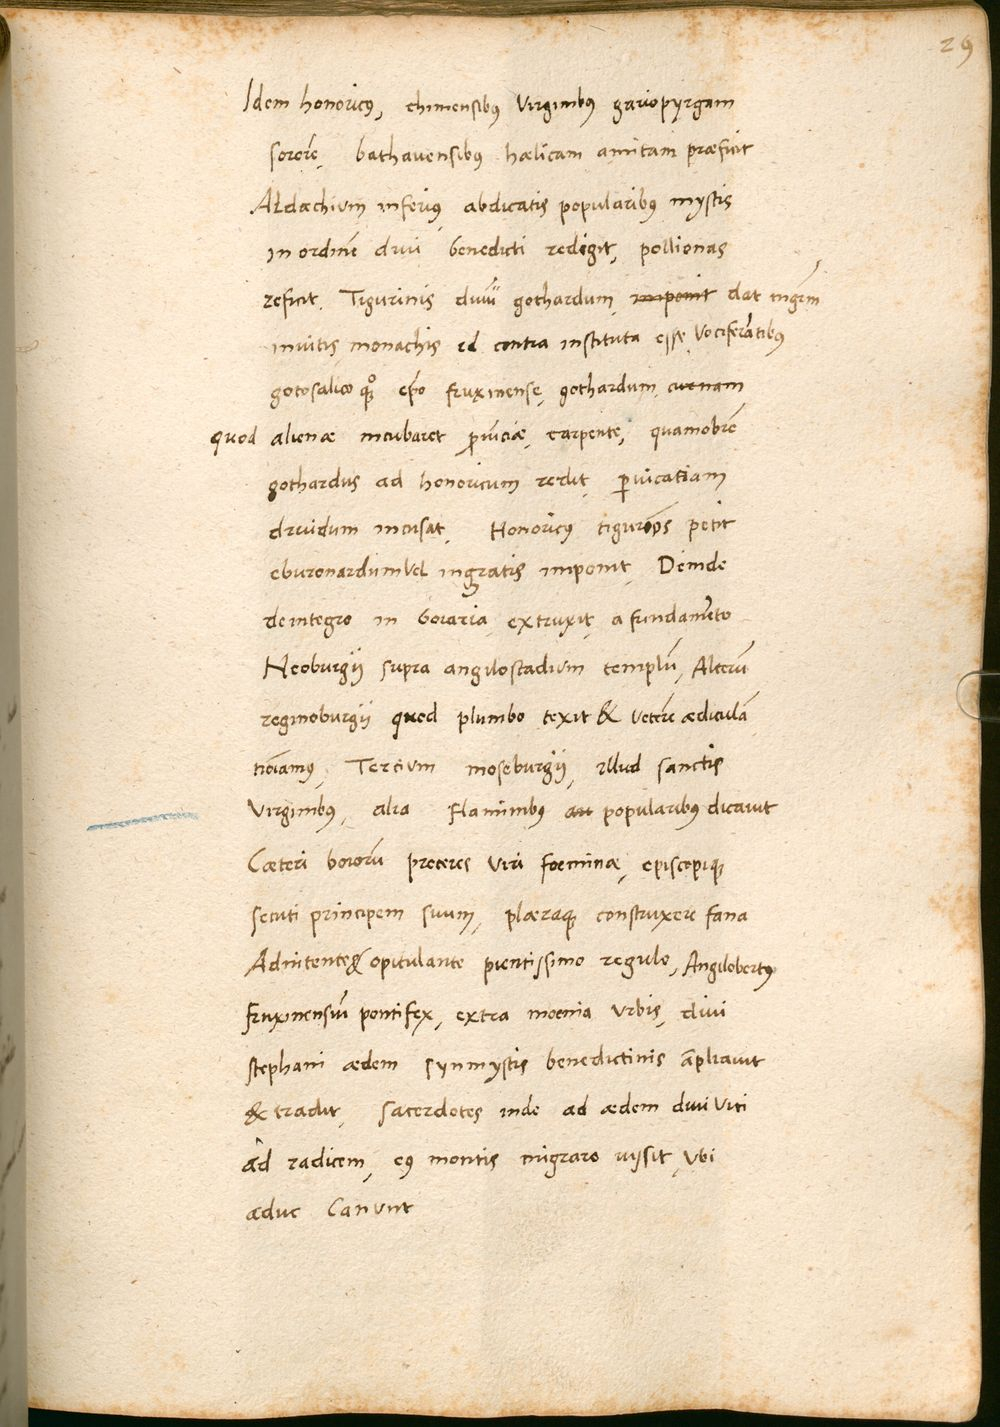 29
Idem honoricus, chimensibus Virginibus gariopyrgam
sorore, bathauensibus hælicam amitam præficit
Aldachium inferius, abdicatis popularibus mystis
in ordinē diui benedicti redigit, pollionas
reficit. Tigurinis diuū gothardum, imponit dat
inuitis monachis id contra instituta esse Vociferātibus
gotosalico quoque epo fruxinense, gothardum curnam
quod alienæ incubaret prouiciæ, carpente, quamobrē
gothardus ad honoricum redit, peruicatiam
druidum incusat. Honoricus petit
eburonardum Vel ingratis imponit. Deinde
de integro in boiaria, extruxit, a fundamēto
Neoburgij supra angilostadium templū, Alterū
reginoburgij quod plumbo texit & veterē ædiculā
Tercium moseburgij, illud sanctis
Virginibus, alia flaminibus an popularibus dicauit
Cæteri boiorū proceres Viri foeminæ, episcopique
secuti principem suum, plæraque construxere fana
Adnitente & opitulante pientissimo regulo, Angilobertus
fruxinensiū pontifex, extra moenia Vrbis, diui
stephani ædem synmystis benedictinis āpliauit
& tradit, sacerdotes inde ad ædem diui Viti
ad radicem, eius montis migraro iusit, Vbi
æduc Canunt